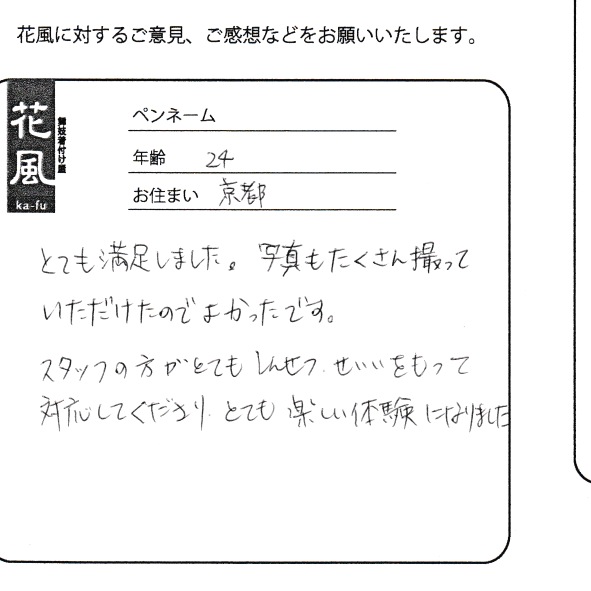 花風に対するご意見、ご感想などをお願いいたします。
花風
舞妓着付け屋
ka-fu
ペンネーム
年齢 24
お住まい 京都
とても満足しました。写真もたくさん撮って
いただけたのでよかったです。
スタッフの方がとてもしんせつ、せいいをもって
対応してくださり、とても楽しい体験になりました